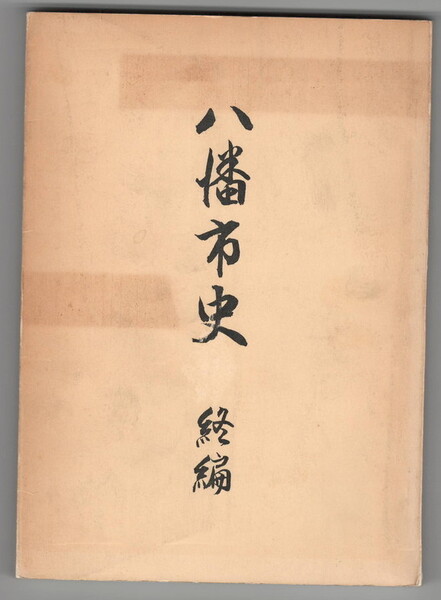 八幡市史
終編